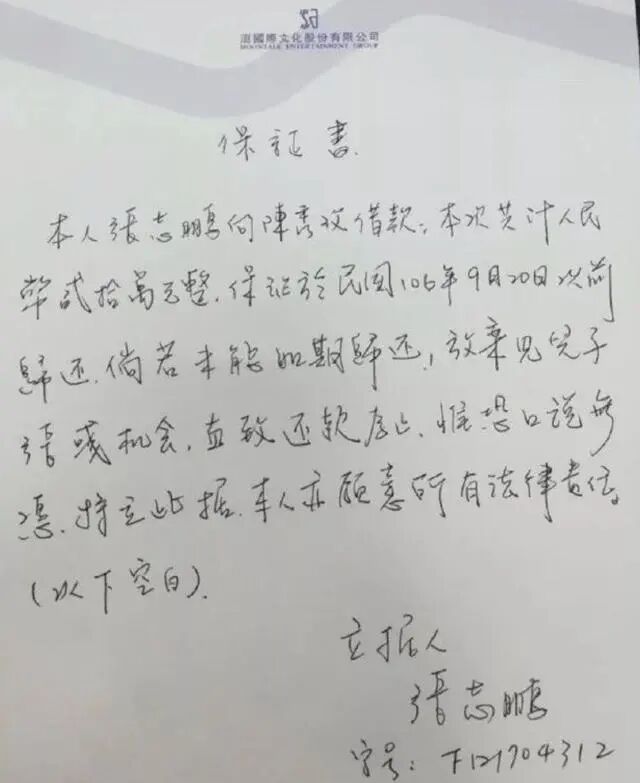 國際文化股份有限公司
MOONTALE ENTERTAINMENT GROUP
保证書.
本人張志鵬向陳秀玫借款,本次共计人民
幣貳拾萬元整.保证於民国106年9月20日以前
歸还.倘若未能如期歸还,放棄见兒子
張彧机会,直致还款為止.惟恐口说無
憑.特立此据.本人亦願意所有法律责任。
(以下空白).
立据人
張志鵬
字号:F121704312